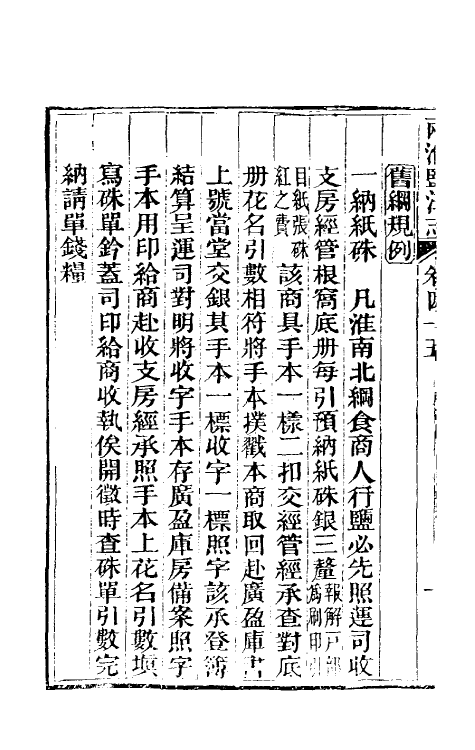 兩淮鹽法志 卷四十五
舊綱規例
一納紙硃 凡淮南北綱食商人行鹽必先照運司收
支房經管根窩底册每引預納紙硃銀三釐報解戶部為刷印引
目紙張硃紅之費該商具手本一樣二扣交經管經承查對底
册花名引數相符將手本撲戳本商取回赴廣盈庫書
上號當堂交銀其手本一標收字一標照字該承登簿
結算呈運司對明將收字手本存廣盈庫房備案照字
手本用印給商赴收支房經承照手本上花名引數塡
寫硃單鈐蓋司印給商收執俟開徵時查硃單引數完
納請單錢糧